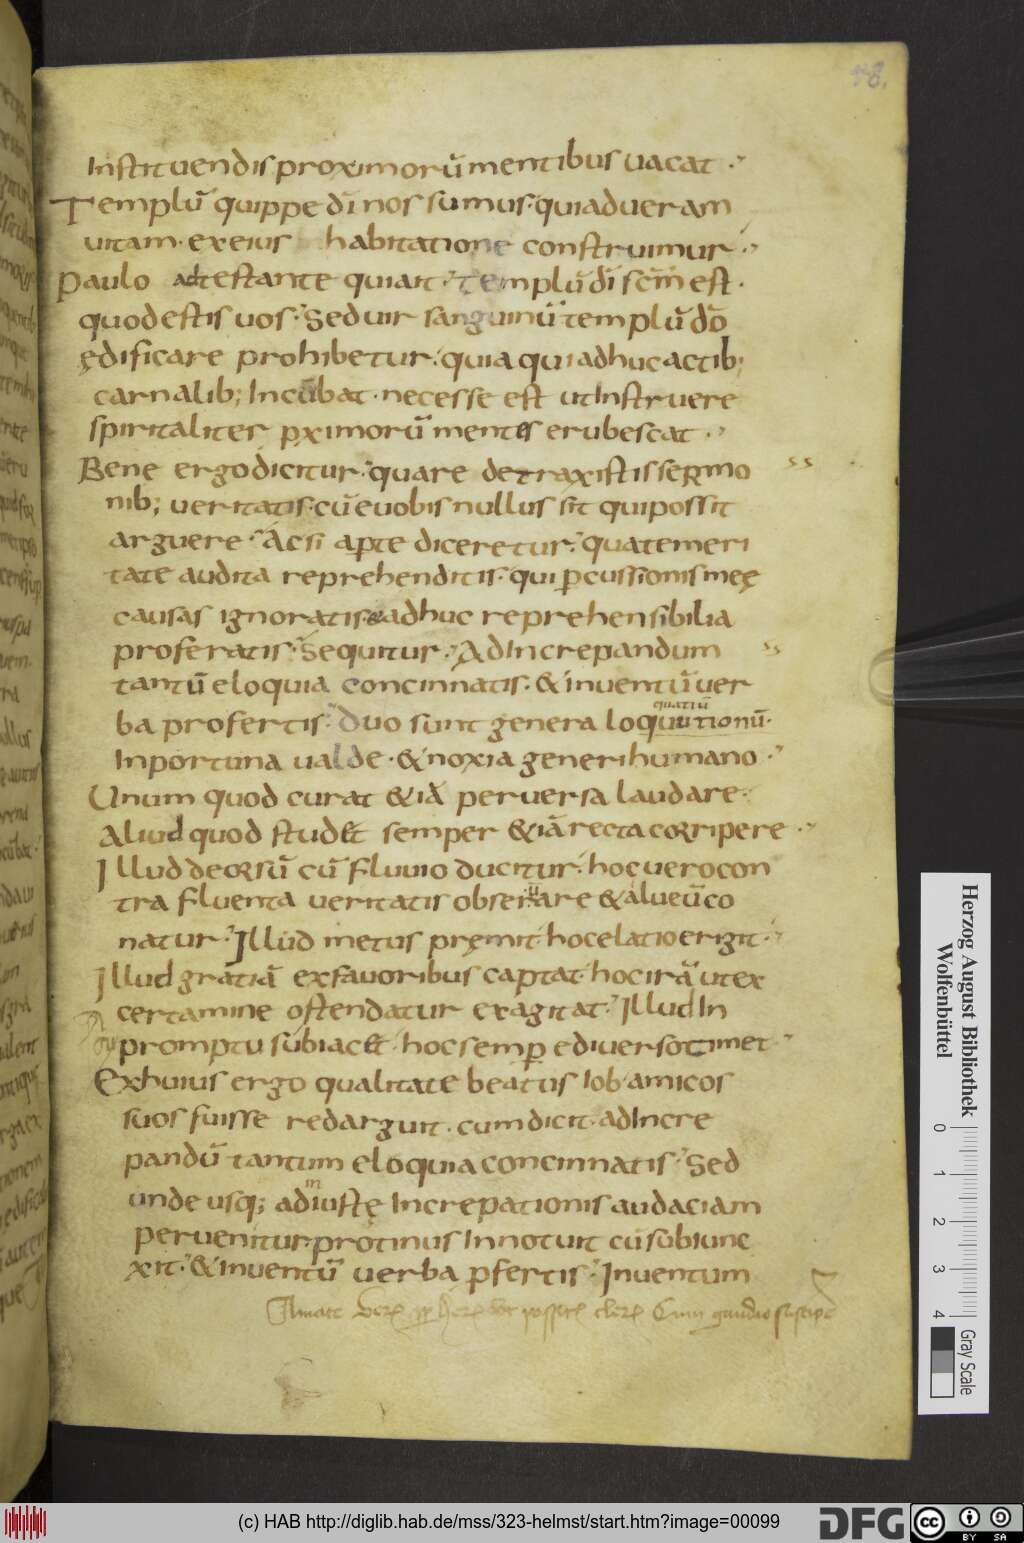 48.
Instituendis proximorū mentibus uacat ·
Templū quippe dī nos sumus · quia dueram
uitam · ex eius habitatione construimur ·
Paulo adtestante qui ait · Templū dī scm̄ est ·
quod estis uos · Sed uir sanguinū templū dō
ędificare prohibetur · quia qui adhuc actib;
carnalib; Incūbat · necesse est ut Instruere
spiritaliter pximorū mentes erubescat ·
Bene ergo dicitur · quare detraxistis sermo
nib; ueritatis · cū e uobis nullus sit qui possit
arguere · Ac si apte diceretur · qua temeri
tate audita reprehenditis · qui pcussionis meę
causas ignoratis · adhuc reprehensibilia
proferatis · Sequitur · Ad Increpandum
tantū eloquia concinnatis · & in uentū uer
ba profertis · Duo sunt genera loquutionū ·
Inportuna ualde · & noxia generi humano ·
Unum quod curat & iā peruersa laudare ·
Aliud quod stud& semper & iā recta corripere ·
Illud deorsū cū fluuio ducitur · hoc uero con
tra fluenta ueritatis obserare & alueū co
natur · Illud metus pręmit hoc elatio erigit ·
Illud gratiā ex fauoribus captat · hoc irā ut ex
certamine ostendatur exagitat · Illud In
promptu subiac& · hoc semp e diuerso timet ·
Ex huius ergo qualitate beatus Iob amicos
suos fuisse redarguit · cum dicit · ad Incre
pandū tantum eloquia concinnatis · Sed
unde usq; ad iniustę Increpationis audaciam
perueni tur protinus Innotuit cū subiunc
xit · & in uentū uerba pfertis · Inuentum
Herzog August Bibliothek
Wolfenbüttel
0
1
2
3
4
Gray Scale
(c) HAB http://diglib.hab.de/mss/323-helmst/start.htm?image=00099
DFG
cc
BY
SA